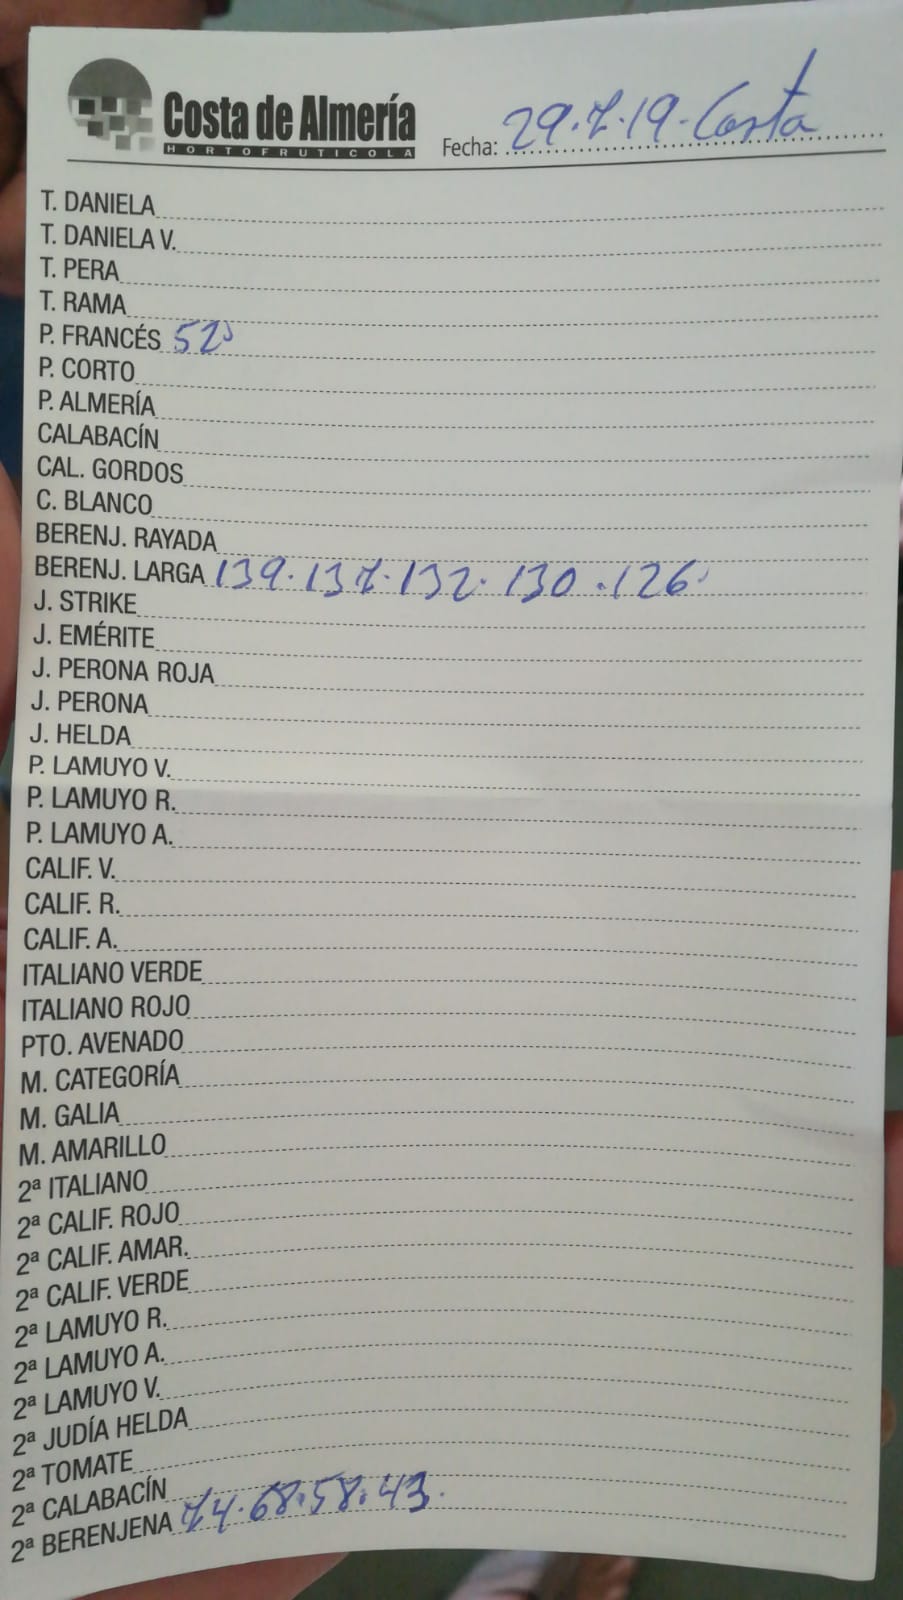 Costa de Almería
HORTOFRUTICOLA
Fecha: 29.7.19. Costa
T. DANIELA
T. DANIELA V.
T. PERA
T. RAMA
P. FRANCÉS 52
P. CORTO
P. ALMERÍA
CALABACÍN
CAL. GORDOS
C. BLANCO
BERENJ. RAYADA
BERENJ. LARGA 139.137.132.130.126
J. STRIKE
J. EMÉRITE
J. PERONA ROJA
J. PERONA
J. HELDA
P. LAMUYO V.
P. LAMUYO R.
P. LAMUYO A.
CALIF. V.
CALIF. R.
CALIF. A.
ITALIANO VERDE
ITALIANO ROJO
PTO. AVENADO
M. CATEGORÍA
M. GALIA
M. AMARILLO
2ª ITALIANO
2ª CALIF. ROJO
2ª CALIF. AMAR.
2ª CALIF. VERDE
2ª LAMUYO R.
2ª LAMUYO A.
2ª LAMUYO V.
2ª JUDÍA HELDA
2ª TOMATE
2ª CALABACÍN
2ª BERENJENA 74.68.58.43.